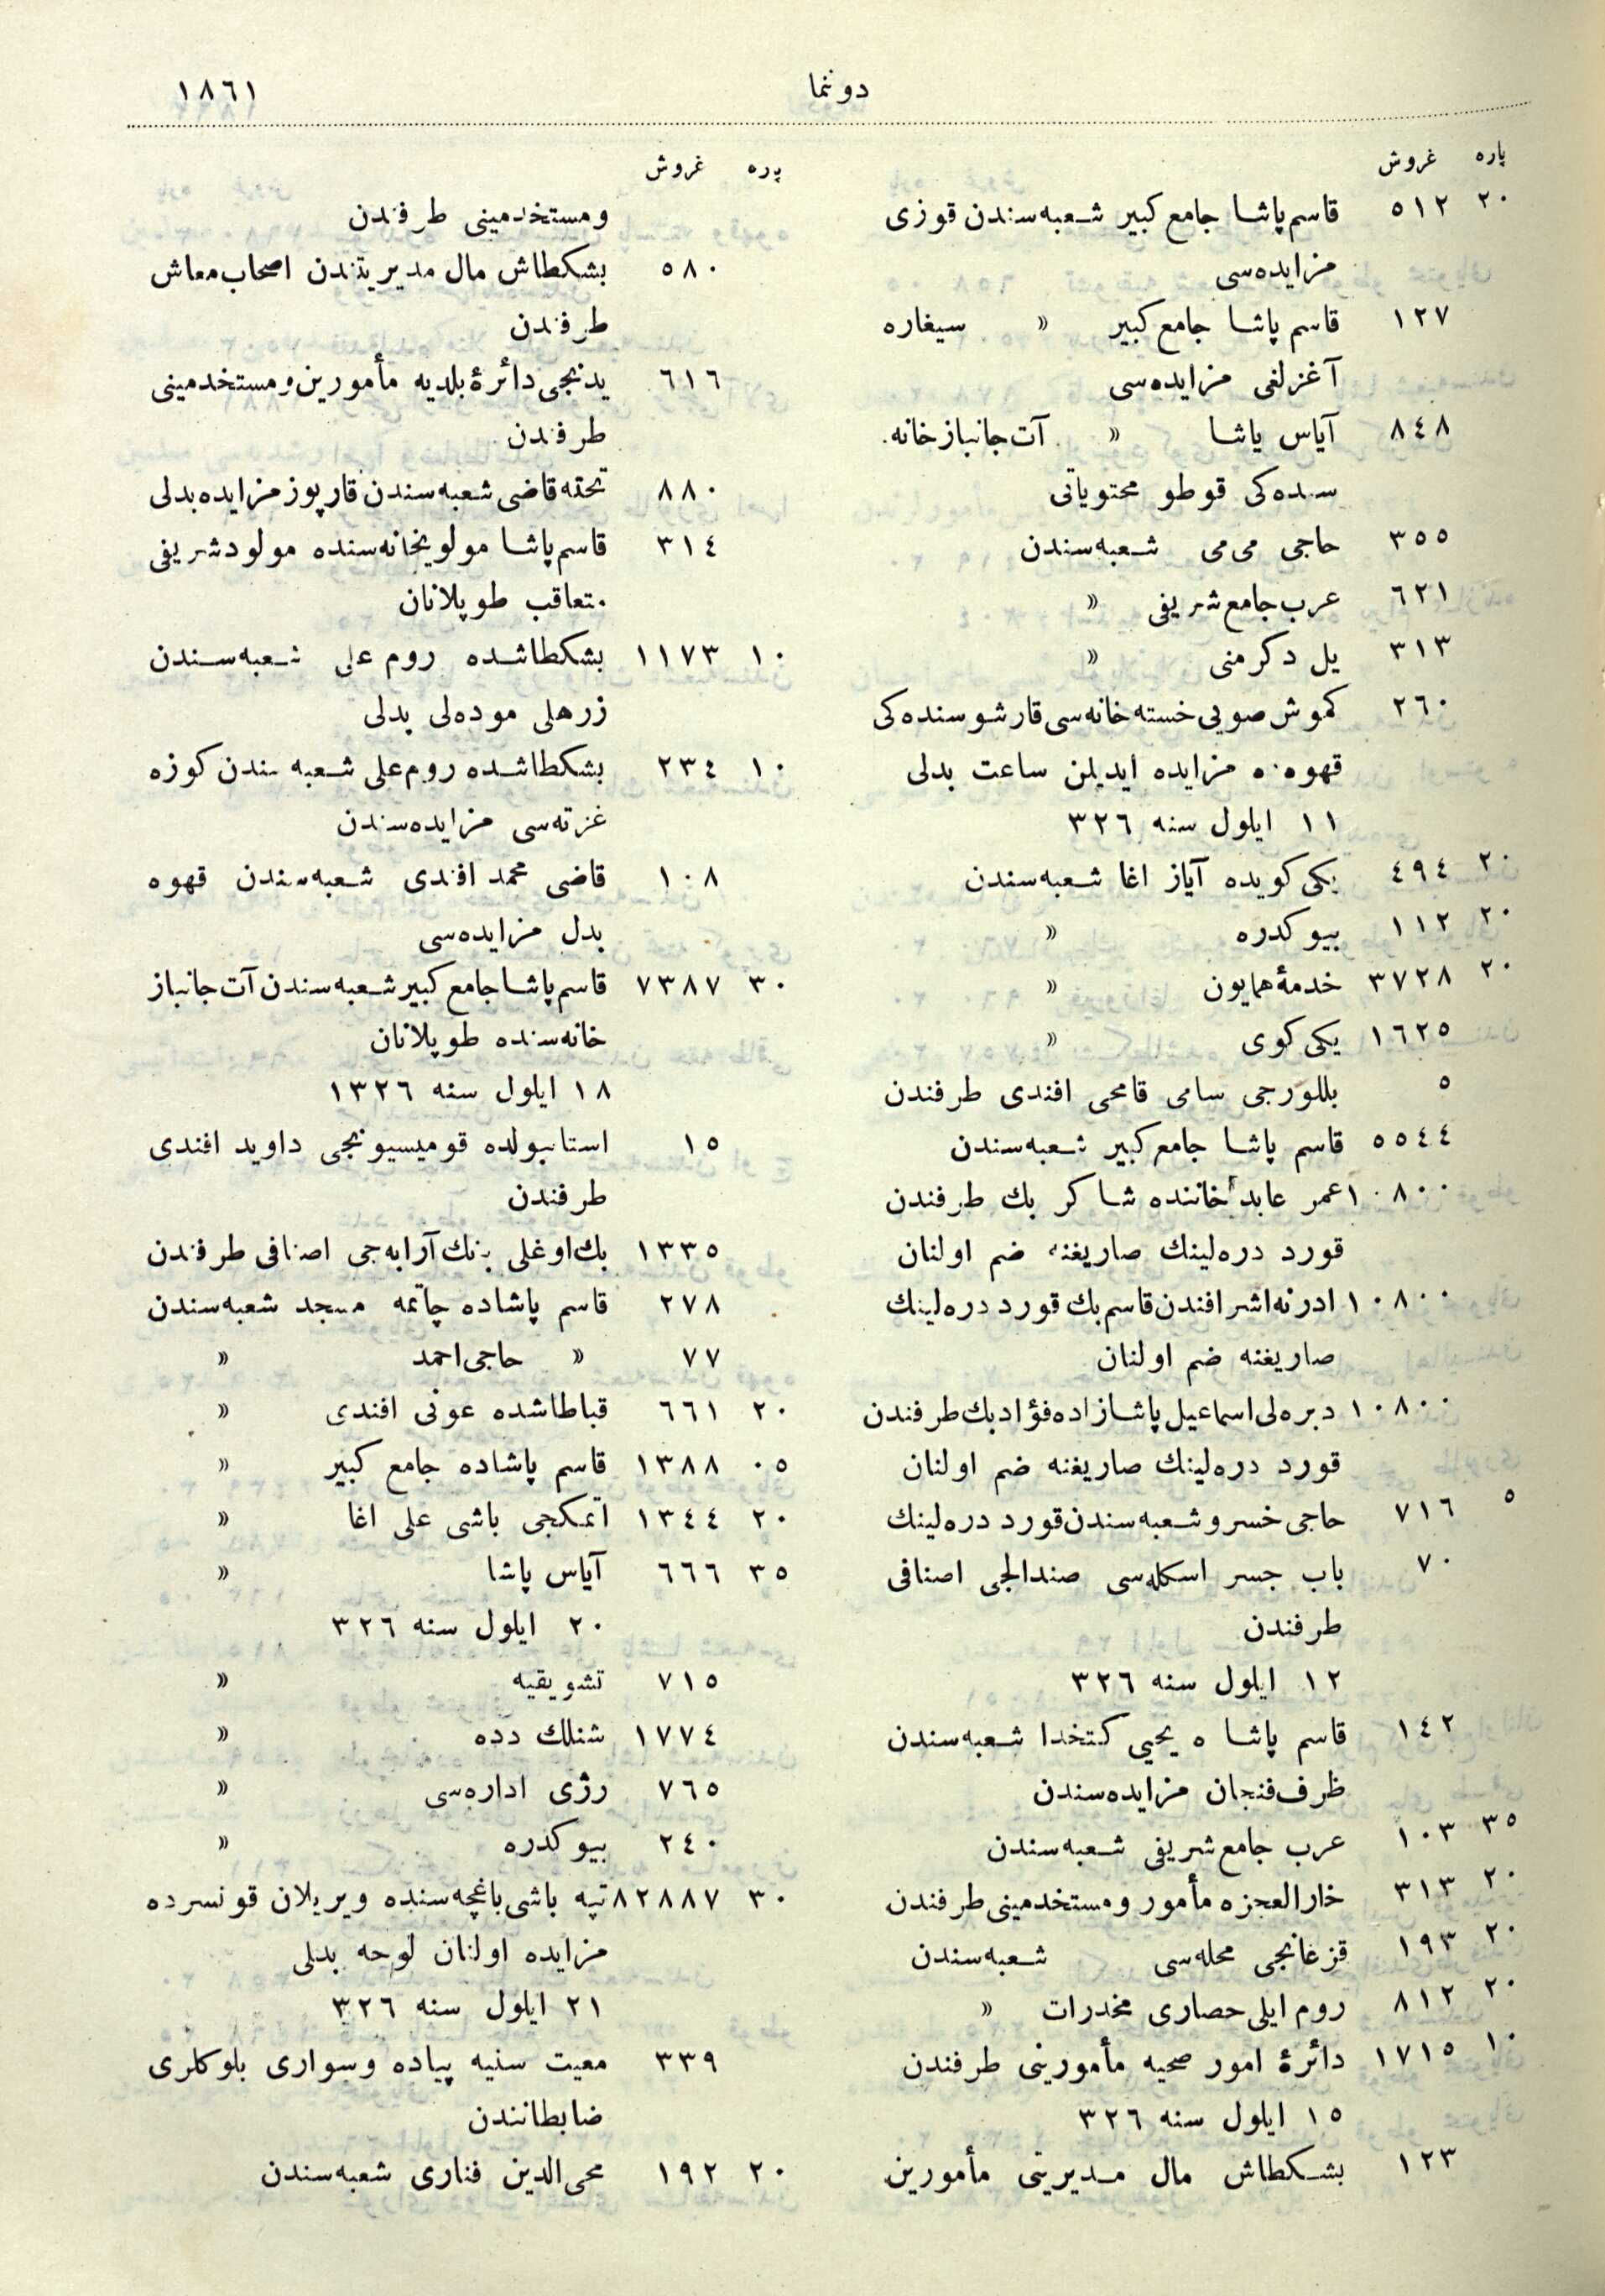 دونما
١٨٦١
پاره غروش
٢٠ ٥١٢ قاسم پاشا جامع كبير شعبه‌سندن قوزى
مزايده‌سى
١٢٧ قاسم پاشا جامع كبير « سيغاره
آغزلغى مزايده‌سى
٨٤٨ آياس پاشا « آت جانبازخانه‌
سنده‌كى قوطو محتوياتى
٣٥٥ حاجى مى مى شعبه‌سندن
٦٢١ عرب جامع شريفى «
٣١٣ يل دكرمنى «
٢٦٠ كموش صويى خسته خانه‌سى قارشوسنده‌كى
قهوه‌ده مزايده ايديلن ساعت بدلى
١١ ايلول سنه ٣٢٦
٢٠ ٤٩٤ يكى كويده آياز اغا شعبه‌سندن
٢٠ ١١٢ بيوكدره «
٢٠ ٣٧٢٨ خدمۀ همايون «
١٦٢٥ يكى كوى «
٥ بللورجى سامى قامحى افندى طرفندن
٥٥٤٤ قاسم پاشا جامع كبير شعبه‌سندن
١٠٨٠٠ عمر عابد خاننده شاكر بك طرفندن
قورد دره‌لينك صاريغنه ضم اولنان
١٠٨٠٠ ادرنه اشرافندن قاسم بك قورد دره‌لينك
صاريغنه ضم اولنان
١٠٨٠٠ دبره‌لى اسماعيل پاشازاده فؤاد بك طرفندن
قورد دره‌لينك صاريغنه ضم اولنان
٥ ٧١٦ حاجى خسرو شعبه‌سندن قورد دره‌لينك
٧٠ باب جسر اسكله‌سى صندالجى اصنافى
طرفندن
١٢ ايلول سنه ٣٢٦
١٤٢ قاسم پاشا ه يحيى كتخدا شعبه‌سندن
ظرف فنجان مزايده‌سندن
٣٥ ١٠٣ عرب جامع شريفى شعبه‌سندن
٢٠ ٣١٣ خارالعجزه مأمور ومستخدمينى طرفندن
٢٠ ١٩٣ قزغانجى محله‌سى شعبه‌سندن
٢٠ ٨١٢ روم ايلى حصارى مخدرات «
١٠ ١٧١٥ دائرۀ امور صحيه مأمورينى طرفندن
١٥ ايلول سنه ٣٢٦
١٢٣ بشكطاش مال مديريتى مأمورين
پاره غروش
ومستخدمينى طرفندن
٥٨٠ بشكطاش مال مديريتندن اصحاب معاش
طرفندن
٦١٦ يدنجى دائرۀ بلديه مأمورين ومستخدمينى
طرفندن
٨٨٠ تخته قاضى شعبه‌سندن قارپوز مزايده بدلى
٣١٤ قاسم پاشا مولويخانه‌سنده مولود شريفى
متعاقب طوپلانان
١٠ ١١٧٣ بشكطاشده روم على شعبه‌سندن
زرهلى موده‌لى بدلى
١٠ ٢٣٤ بشكطاشده روم على شعبه‌سندن كوزه
غزته‌سى مزايده‌سندن
١٠٨ قاضى محمد افندى شعبه‌سندن قهوه
بدل مزايده‌سى
٣٠ ٧٣٨٧ قاسم پاشا جامع كبير شعبه‌سندن آت جانباز
خانه‌سنده طوپلانان
١٨ ايلول سنه ١٣٢٦
١٥ استانبولده قوميسيونجى داويد افندى
طرفندن
١٣٣٥ بك اوغلى بنك آرابه‌جى اصنافى طرفندن
٢٧٨ قاسم پاشاده چاتمه مسجد شعبه‌سندن
٧٧ « حاجى احمد «
٢٠ ٦٦١ قباطاشده عونى افندى «
٠٥ ١٣٨٨ قاسم پاشاده جامع كبير «
٢٠ ١٣٤٤ اتمكجى باشى على اغا «
٣٥ ٦٦٦ آياس پاشا «
٢٠ ايلول سنه ٣٢٦
٧١٥ تشويقيه «
١٧٧٤ شنلك دده «
٧٦٥ رژى اداره‌سى «
٢٤٠ بيوكدره «
٣٠ ٨٢٨٨٧ تپه باشى باغچه‌سنده ويريلان قونسرده
مزايده اولنان لوحه بدلى
٢١ ايلول سنه ٣٢٦
٣٣٩ معيت سنيه پياده وسوارى بلوكلرى
ضابطانندن
٢٠ ١٩٢ محى الدين فنارى شعبه‌سندن